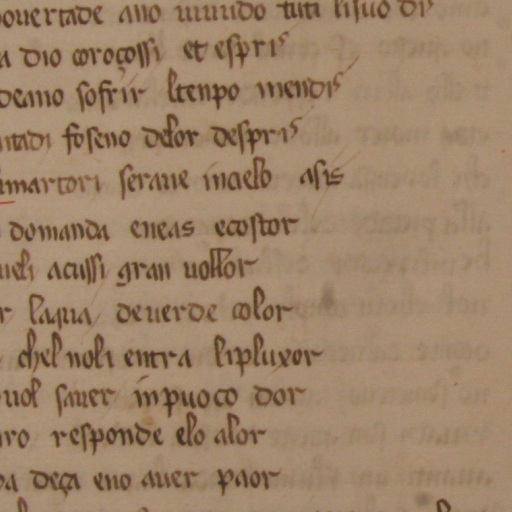 overtade ano tuti lisuo dii
a dio coroçossi et espris
deano sofrir ltenpo mendis
ntadi foseno delor despris
martori seraue incielo asis
domanda eneas ecostor
ueli acussi gran uollor
r laqua deuerde color
chel noli entra lipluxor
uol sauer inpuoco dor
ro responde elo alor
a deça eno auer paor